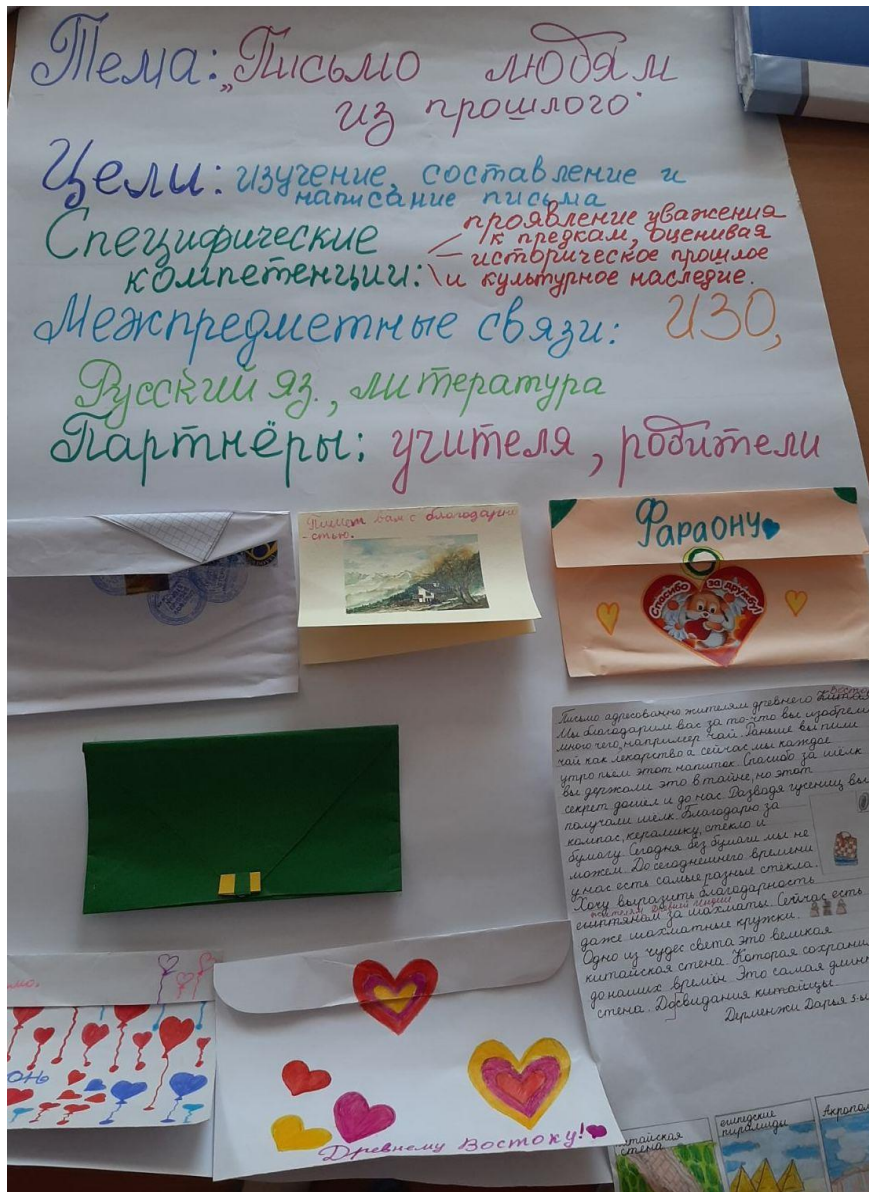 Тема: „Письмо людям
из прошлого"
Цели: изучение, составление и
написание письма
Специфические
компетенции:
проявление уважения
к предкам, оценивая
историческое прошлое
и культурное наследие.
Межпредметные связи: ИЗО,
Русский яз., литература
Партнёры: учителя, родители
Пишем вам с благодарно
-стью.
Фараону
Спасибо за дружбу!
Письмо адресованно жителям древнего Востока
Мы благодарим вас за то-что вы изобрели
много чего, например чай. Раньше вы пили
чай как лекарство а сейчас мы каждое
утро пьем этот напиток. Спасибо за шёлк
вы держали это в тайне, но этот
секрет дошел и до нас. Разводя гусениц вы
получали шёлк. Благодарю за
компас, керамику, стекло и
бумагу. Сегодня без бумаги мы не
можем. До сегоднешнего времени
у нас есть самые разные стёкла.
Хочу выразить благодарность
жителям Древней Индии
египтянам за шахматы. Сейчас есть
даже шахматные кружки.
Одно из чудес света это великая
китайская стена. Которая сохрани
до наших времён. Это самая длинн
стена. Досвидания китайцы.
Дерменжи Дарья 5-ы
Древнему Востоку!
китайская
стена
египедские
пирамиды
Акропол